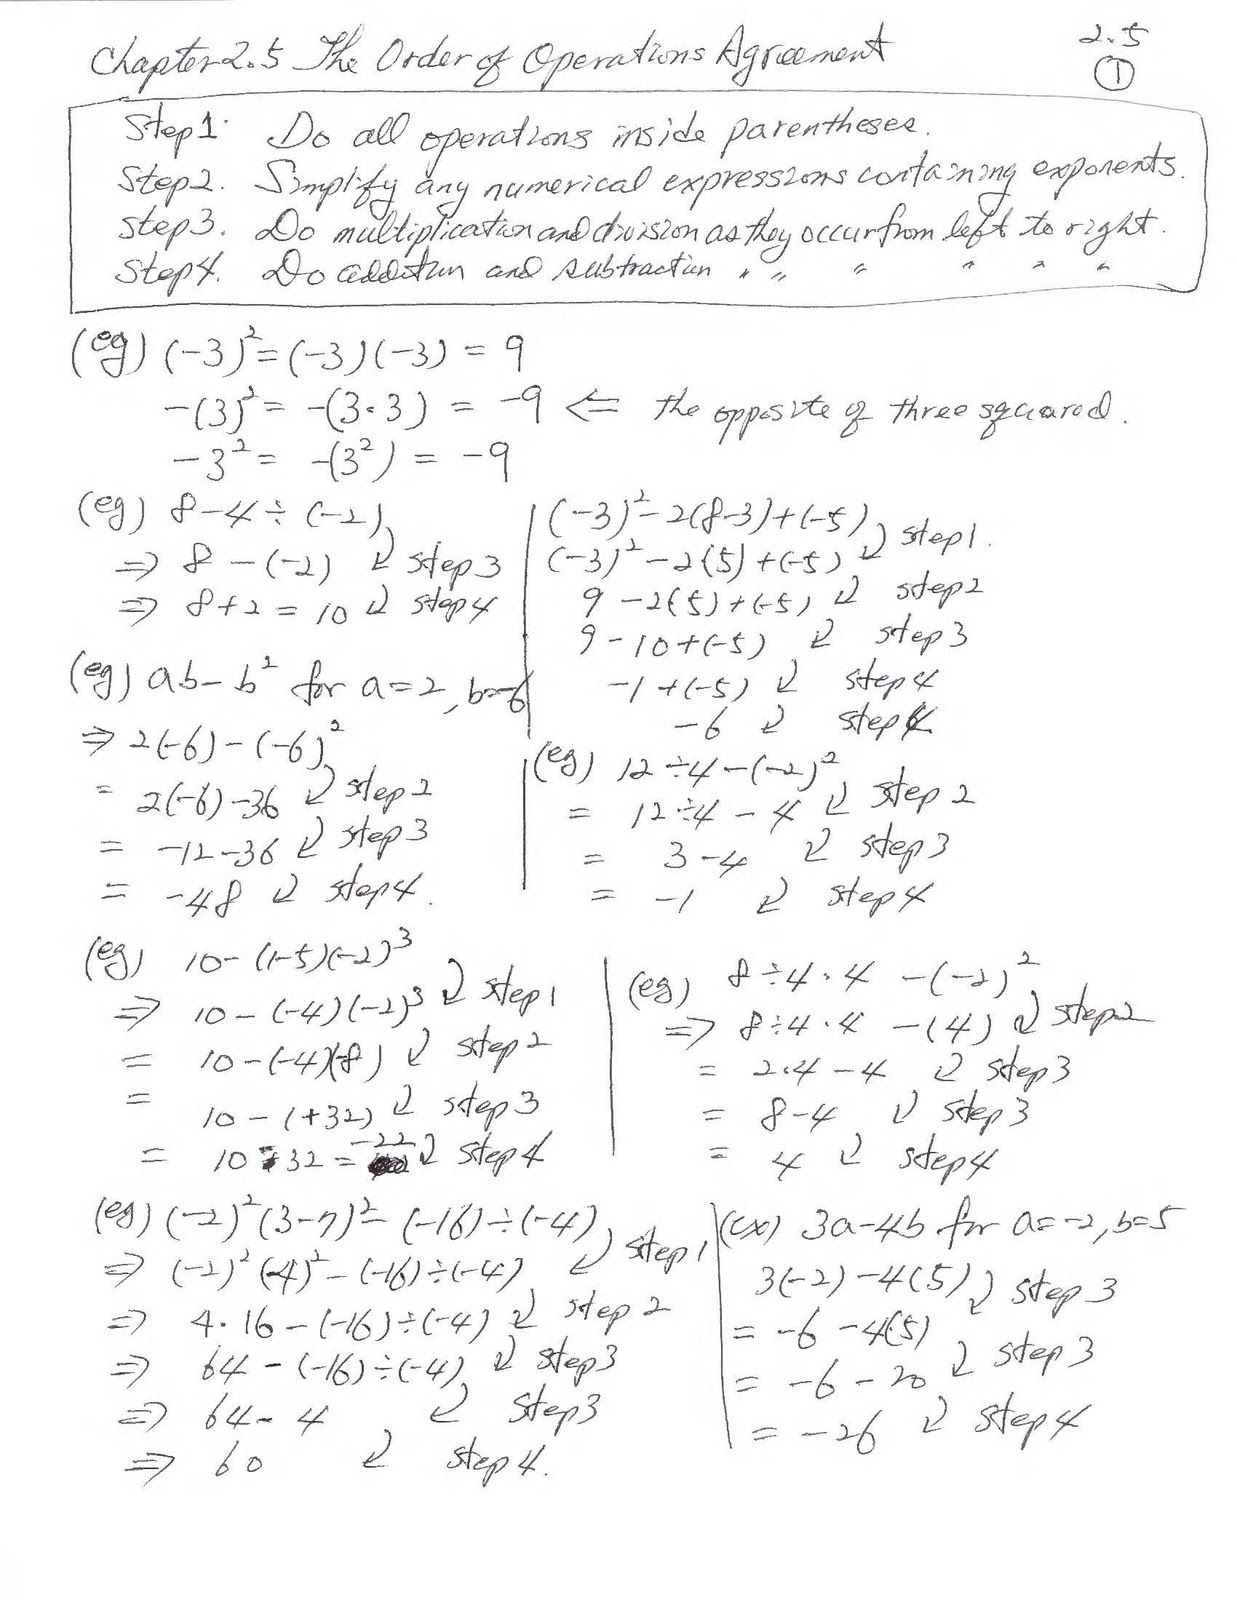 Chapter 2.5 The Order of Operations Agreement
2.5
①
Step1. Do all operations inside parentheses.
Step2. Simplify any numerical expressions containing exponents.
Step3. Do multiplication and division as they occur from left to right.
Step4. Do addition and subtraction " " " " " "
(eg) (-3)² = (-3)(-3) = 9
-(3)² = -(3·3) = -9 ⇐ the opposite of three squared.
-3² = -(3²) = -9
(eg) 8-4÷(-2)
⇒ 8-(-2) step3
⇒ 8+2 = 10 step4
(-3)²-2(8-3)+(-5)
(-3)²-2(5)+(-5) step1.
9-2(5)+(-5) step2
9-10+(-5) step3
-1+(-5) step4
-6 step4
(eg) ab-b² for a=2, b=-6
⇒ 2(-6)-(-6)²
= 2(-6)-36 step2
= -12-36 step3
= -48 step4.
(eg) 12÷4-(-2)²
= 12÷4-4 step2
= 3-4 step3
= -1 step4
(eg) 10-(1-5)(-2)³
⇒ 10-(-4)(-2)³ step1
= 10-(-4)(-8) step2
= 10-(+32) step3
= 10-32 = -22 step4
(eg) 8÷4·4-(-2)²
⇒ 8÷4·4-(4) step2
= 2·4-4 step3
= 8-4 step3
= 4 step4
(eg) (-2)²(3-7)²-(-16)÷(-4)
⇒ (-2)²(-4)²-(-16)÷(-4) step1
⇒ 4·16-(-16)÷(-4) step2
⇒ 64-(-16)÷(-4) step3
⇒ 64-4 step3
⇒ 60 step4.
(ex) 3a-4b for a=-2, b=5
3(-2)-4(5)
= -6-4(5) step3
= -6-20 step3
= -26 step4